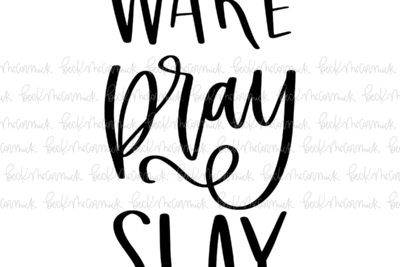 WAKE
pray
SLAY